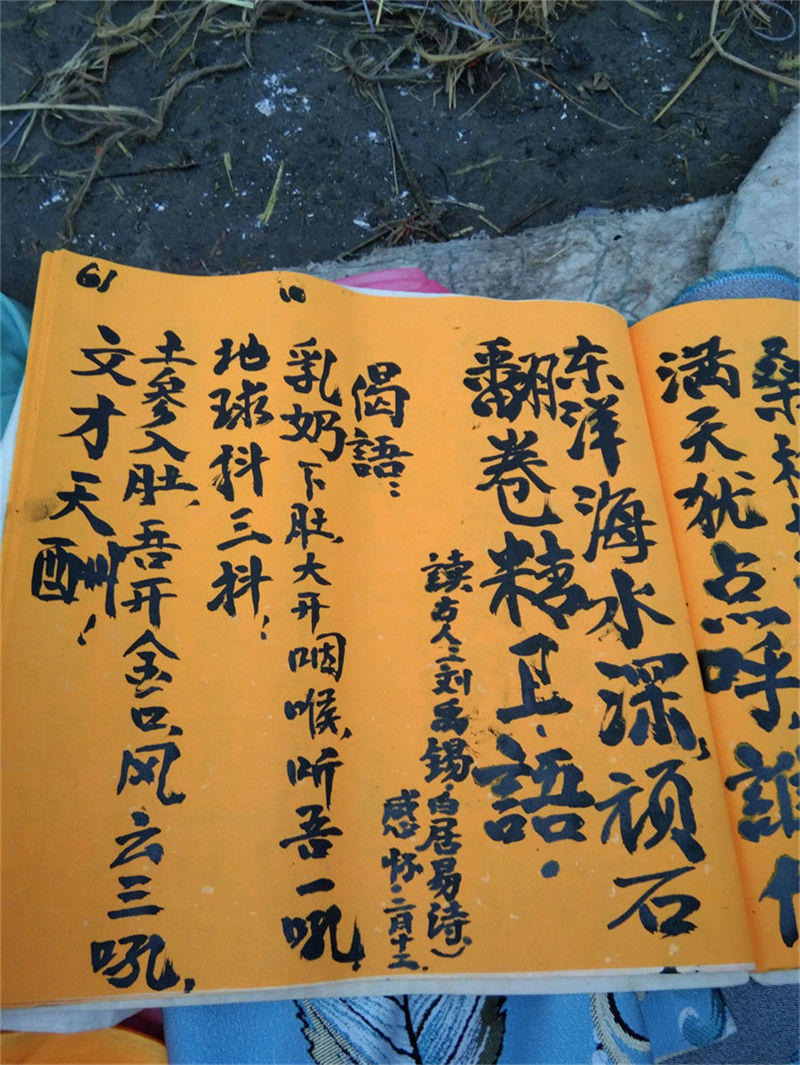 桑
满天犹点呼，誰
东洋海水深，顽石
翻卷精卫語。
读古人：刘禹锡，白居易诗，）
感怀，二月十二．
偈語：
乳奶下肚，大开咽喉，听吾一吼，
地球抖三抖！
土参入肚，吾开金口，风云三吼，
文才天酬！
61